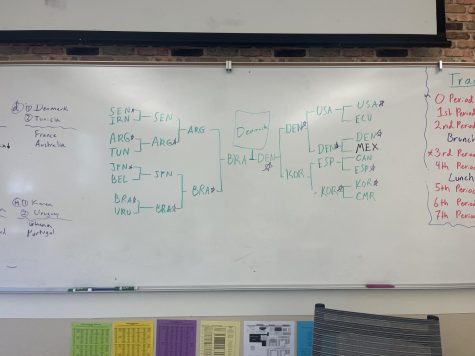 ⓓ ① Denmark
② Tunisia
France
Australia
① Korea
② Uruguay
Ghana
Portugal
SEN
IRN
SEN
ARG
TUN
ARG
ARG
JPN
BEL
JPN
BRA
URU
BRA
BRA
BRA
Denmark
DEN
DEN
USA
USA
ECU
DEN
DEN
MEX
KOR
ESP
CAN
ESP
KOR
KOR
CMR
0 Period
1st Period
2nd Period
Brunch
*3rd Period
4th Period
Lunch
5th Period
6th Period
7th Period